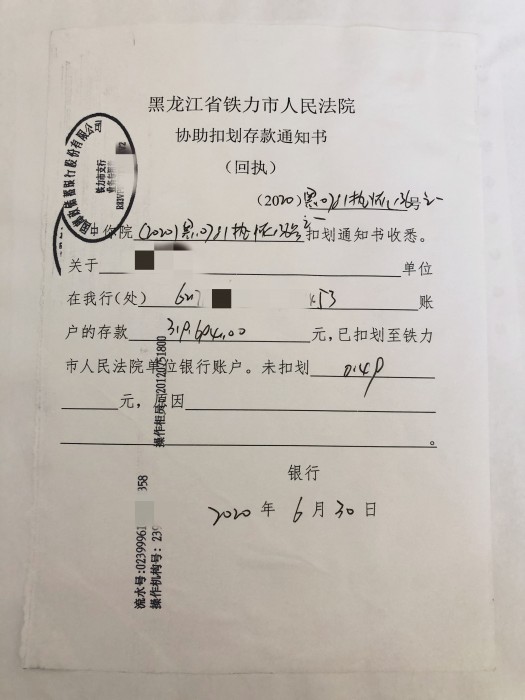 黑龙江省铁力市人民法院
协助扣划存款通知书
(回执)
(2020)黑0781执恢 号之一
中你院(2020)黑0781执恢 号之一扣划通知书收悉。
关于 单位
在我行(处) 53 账
户的存款 319.604.00 元,已扣划至铁力
市人民法院单位银行账户。未扣划 0.49
元, 因 。
银行
2020年6月30日
银行股份有限公司
铁力市支行
操作柜员:20120751800
流水号:02399961 358
操作机构号: 239